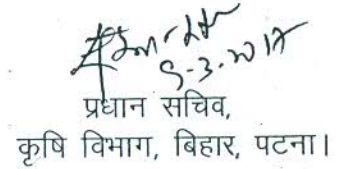 9-3-2017
प्रधान सचिव,
कृषि विभाग, बिहार, पटना।